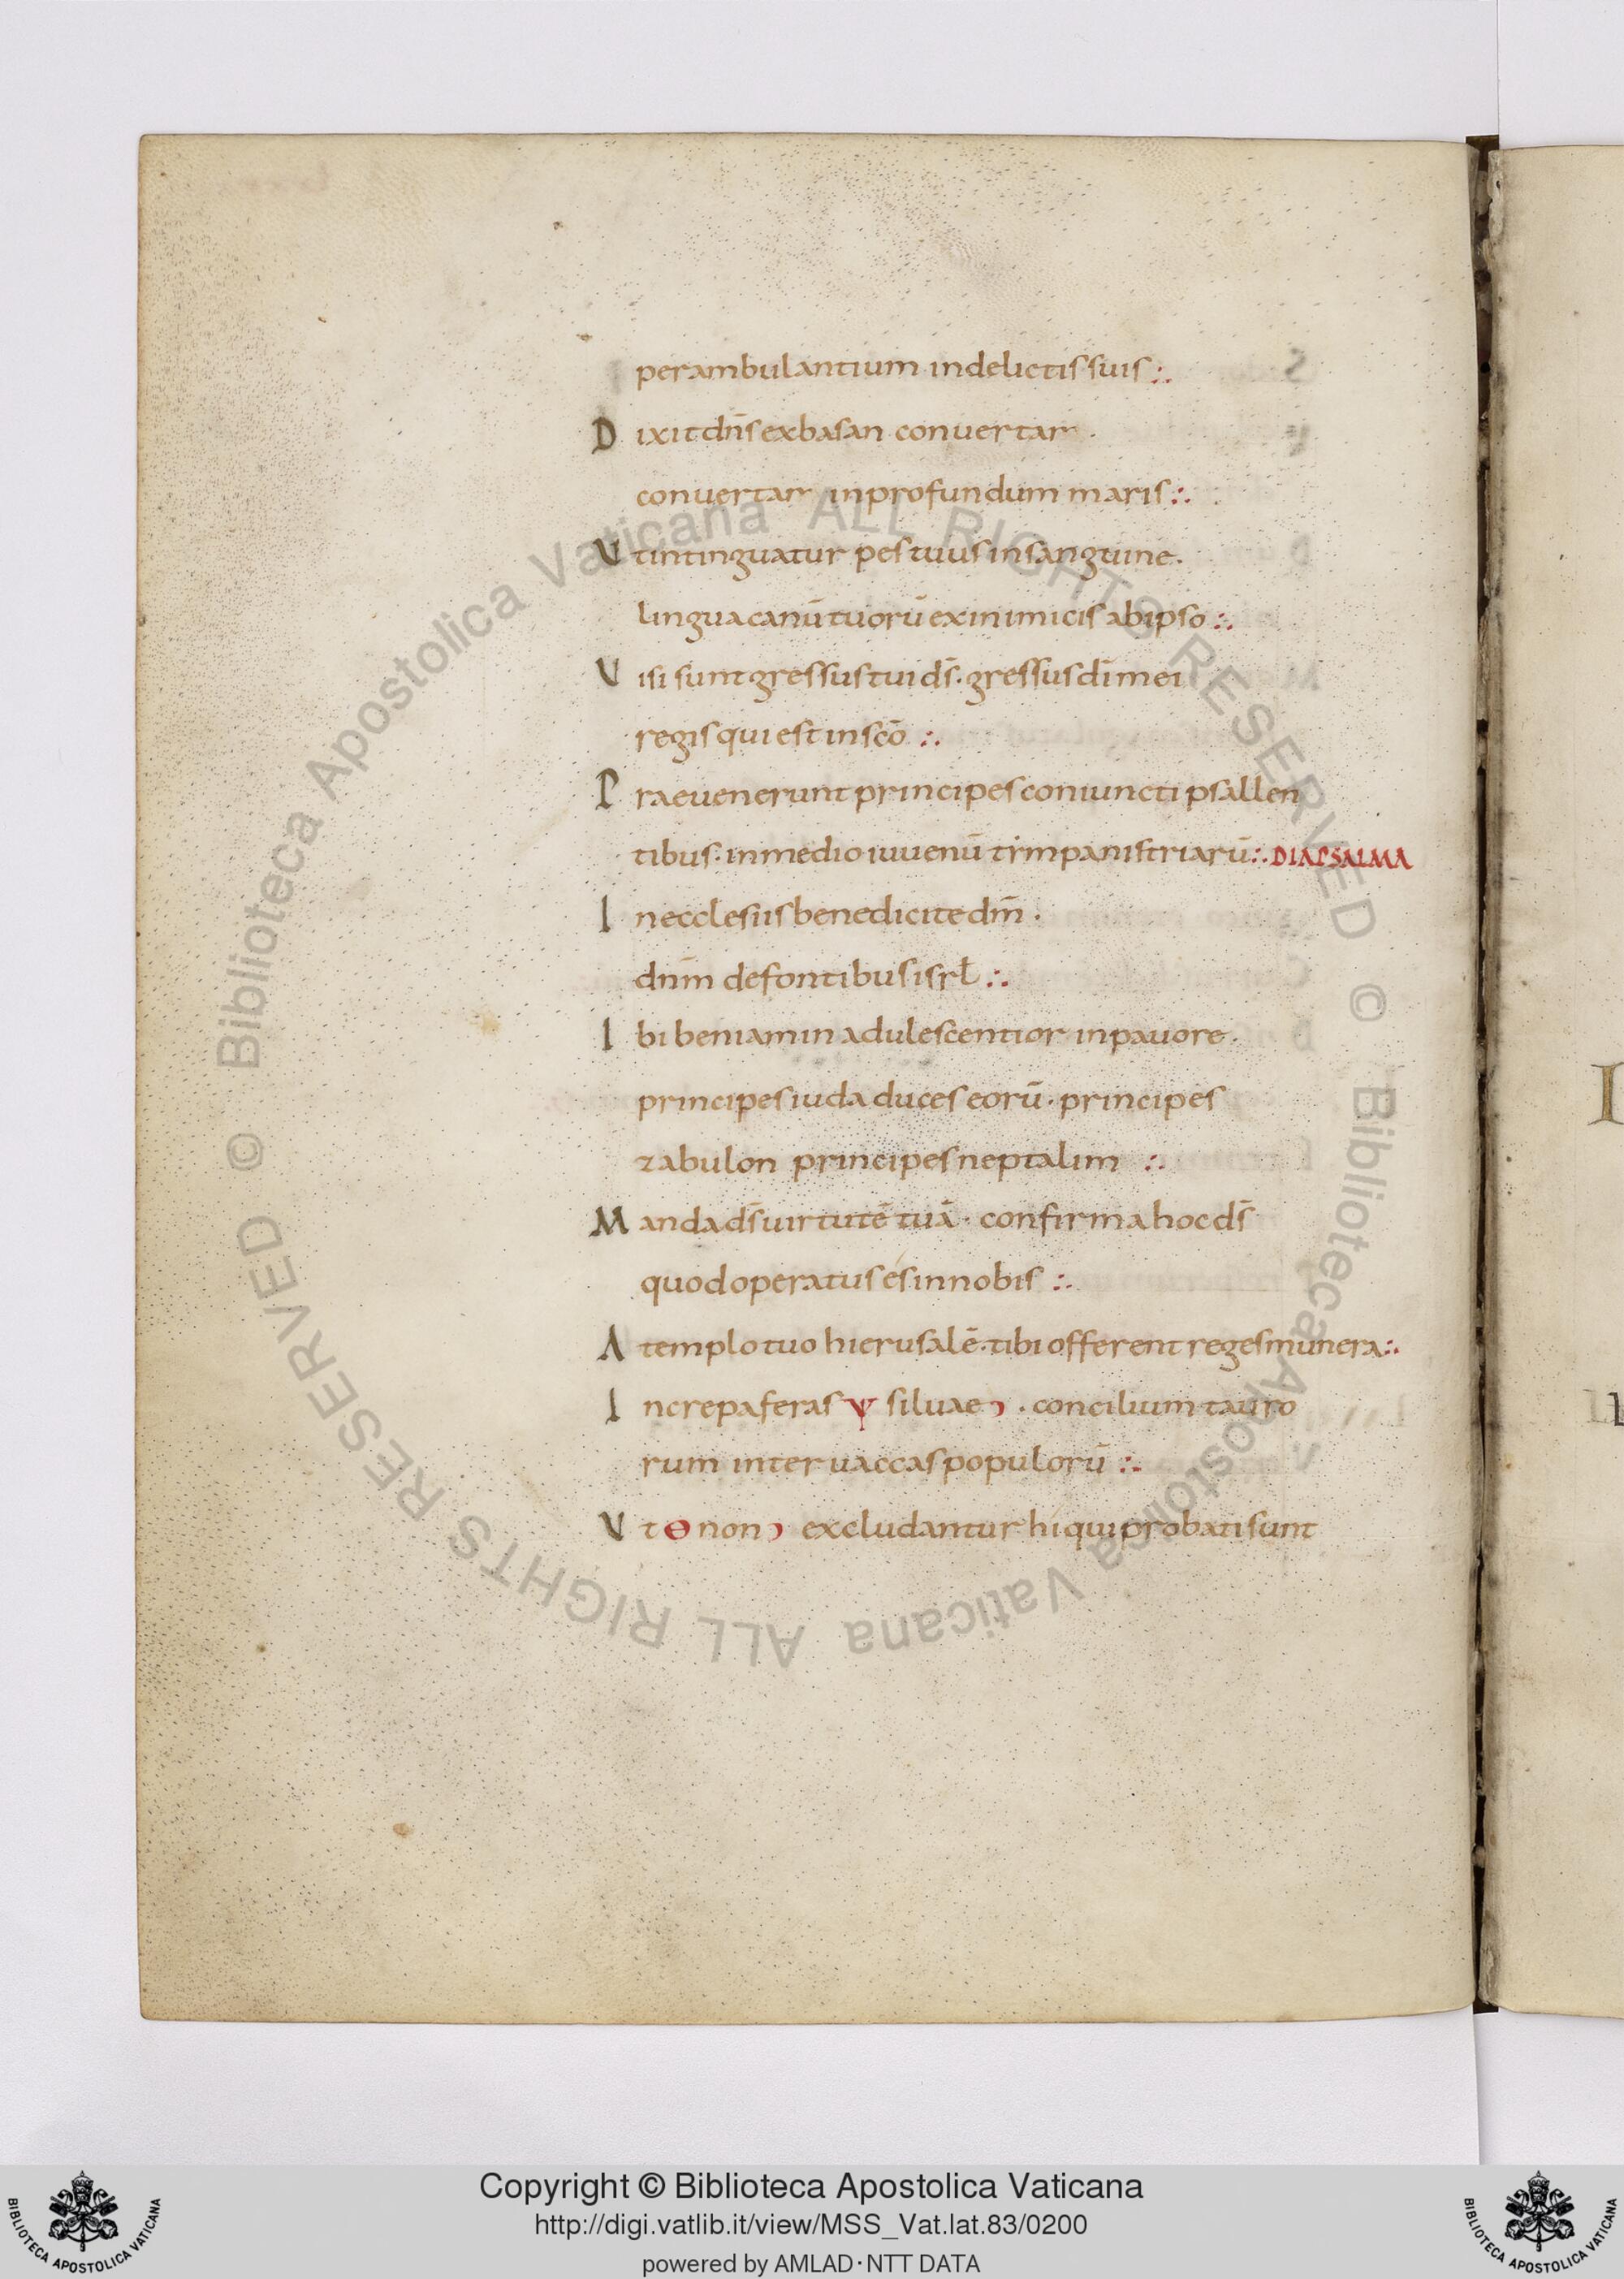 perambulantium indelictis suis :.
D ixit dn̄s exbasan convertar .
convertar inprofundum maris :.
V tintinguatur pes tuus insanguine .
lingua canū tuorū exinimicis abipso :.
V isi sunt gressus tui ds̄ . gressus dī mei
regis qui est insc̄o :.
P raevenerunt principes coniuncti psallen
tibus . inmedio iuvenū tẏmpanistriarū :. DIAPSALMA
I necclesiis benedicite dm̄ .
dnm̄ defontibus isrł :.
I bi beniamin adulescentior inpavore .
principes iuda duces eorū . principes
zabulon principes neptalim :.
M anda ds̄ virtutē tuā . confirma hoc ds̄
quod operatus és innobis :.
A templo tuo hierusalē . tibi offerent reges munera :.
I ncrepa feras Ψ silvae ꜿ . concilium tauro
rum inter vaccas populorū :.
V t Θ non ꜿ excludantur hí qui probati sunt
Biblioteca Apostolica Vaticana ALL RIGHTS RESERVED © Biblioteca Apostolica Vaticana ALL RIGHTS RESERVED ©
Copyright © Biblioteca Apostolica Vaticana
http://digi.vatlib.it/view/MSS_Vat.lat.83/0200
powered by AMLAD·NTT DATA
BIBLIOTECA APOSTOLICA VATICANA
BIBLIOTECA APOSTOLICA VATICANA